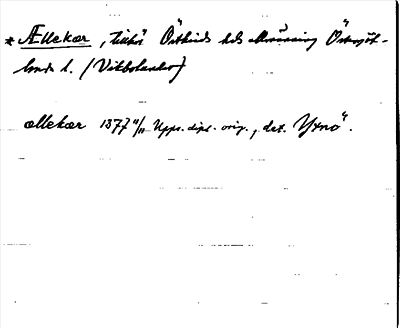 * Ællekær, tillhö Östkinds hds allmänning Östergöt-
lands l. (Vikbolandet)
ællekær 1377 11/11 Upps. dipl. orig., dat. Yxnö.